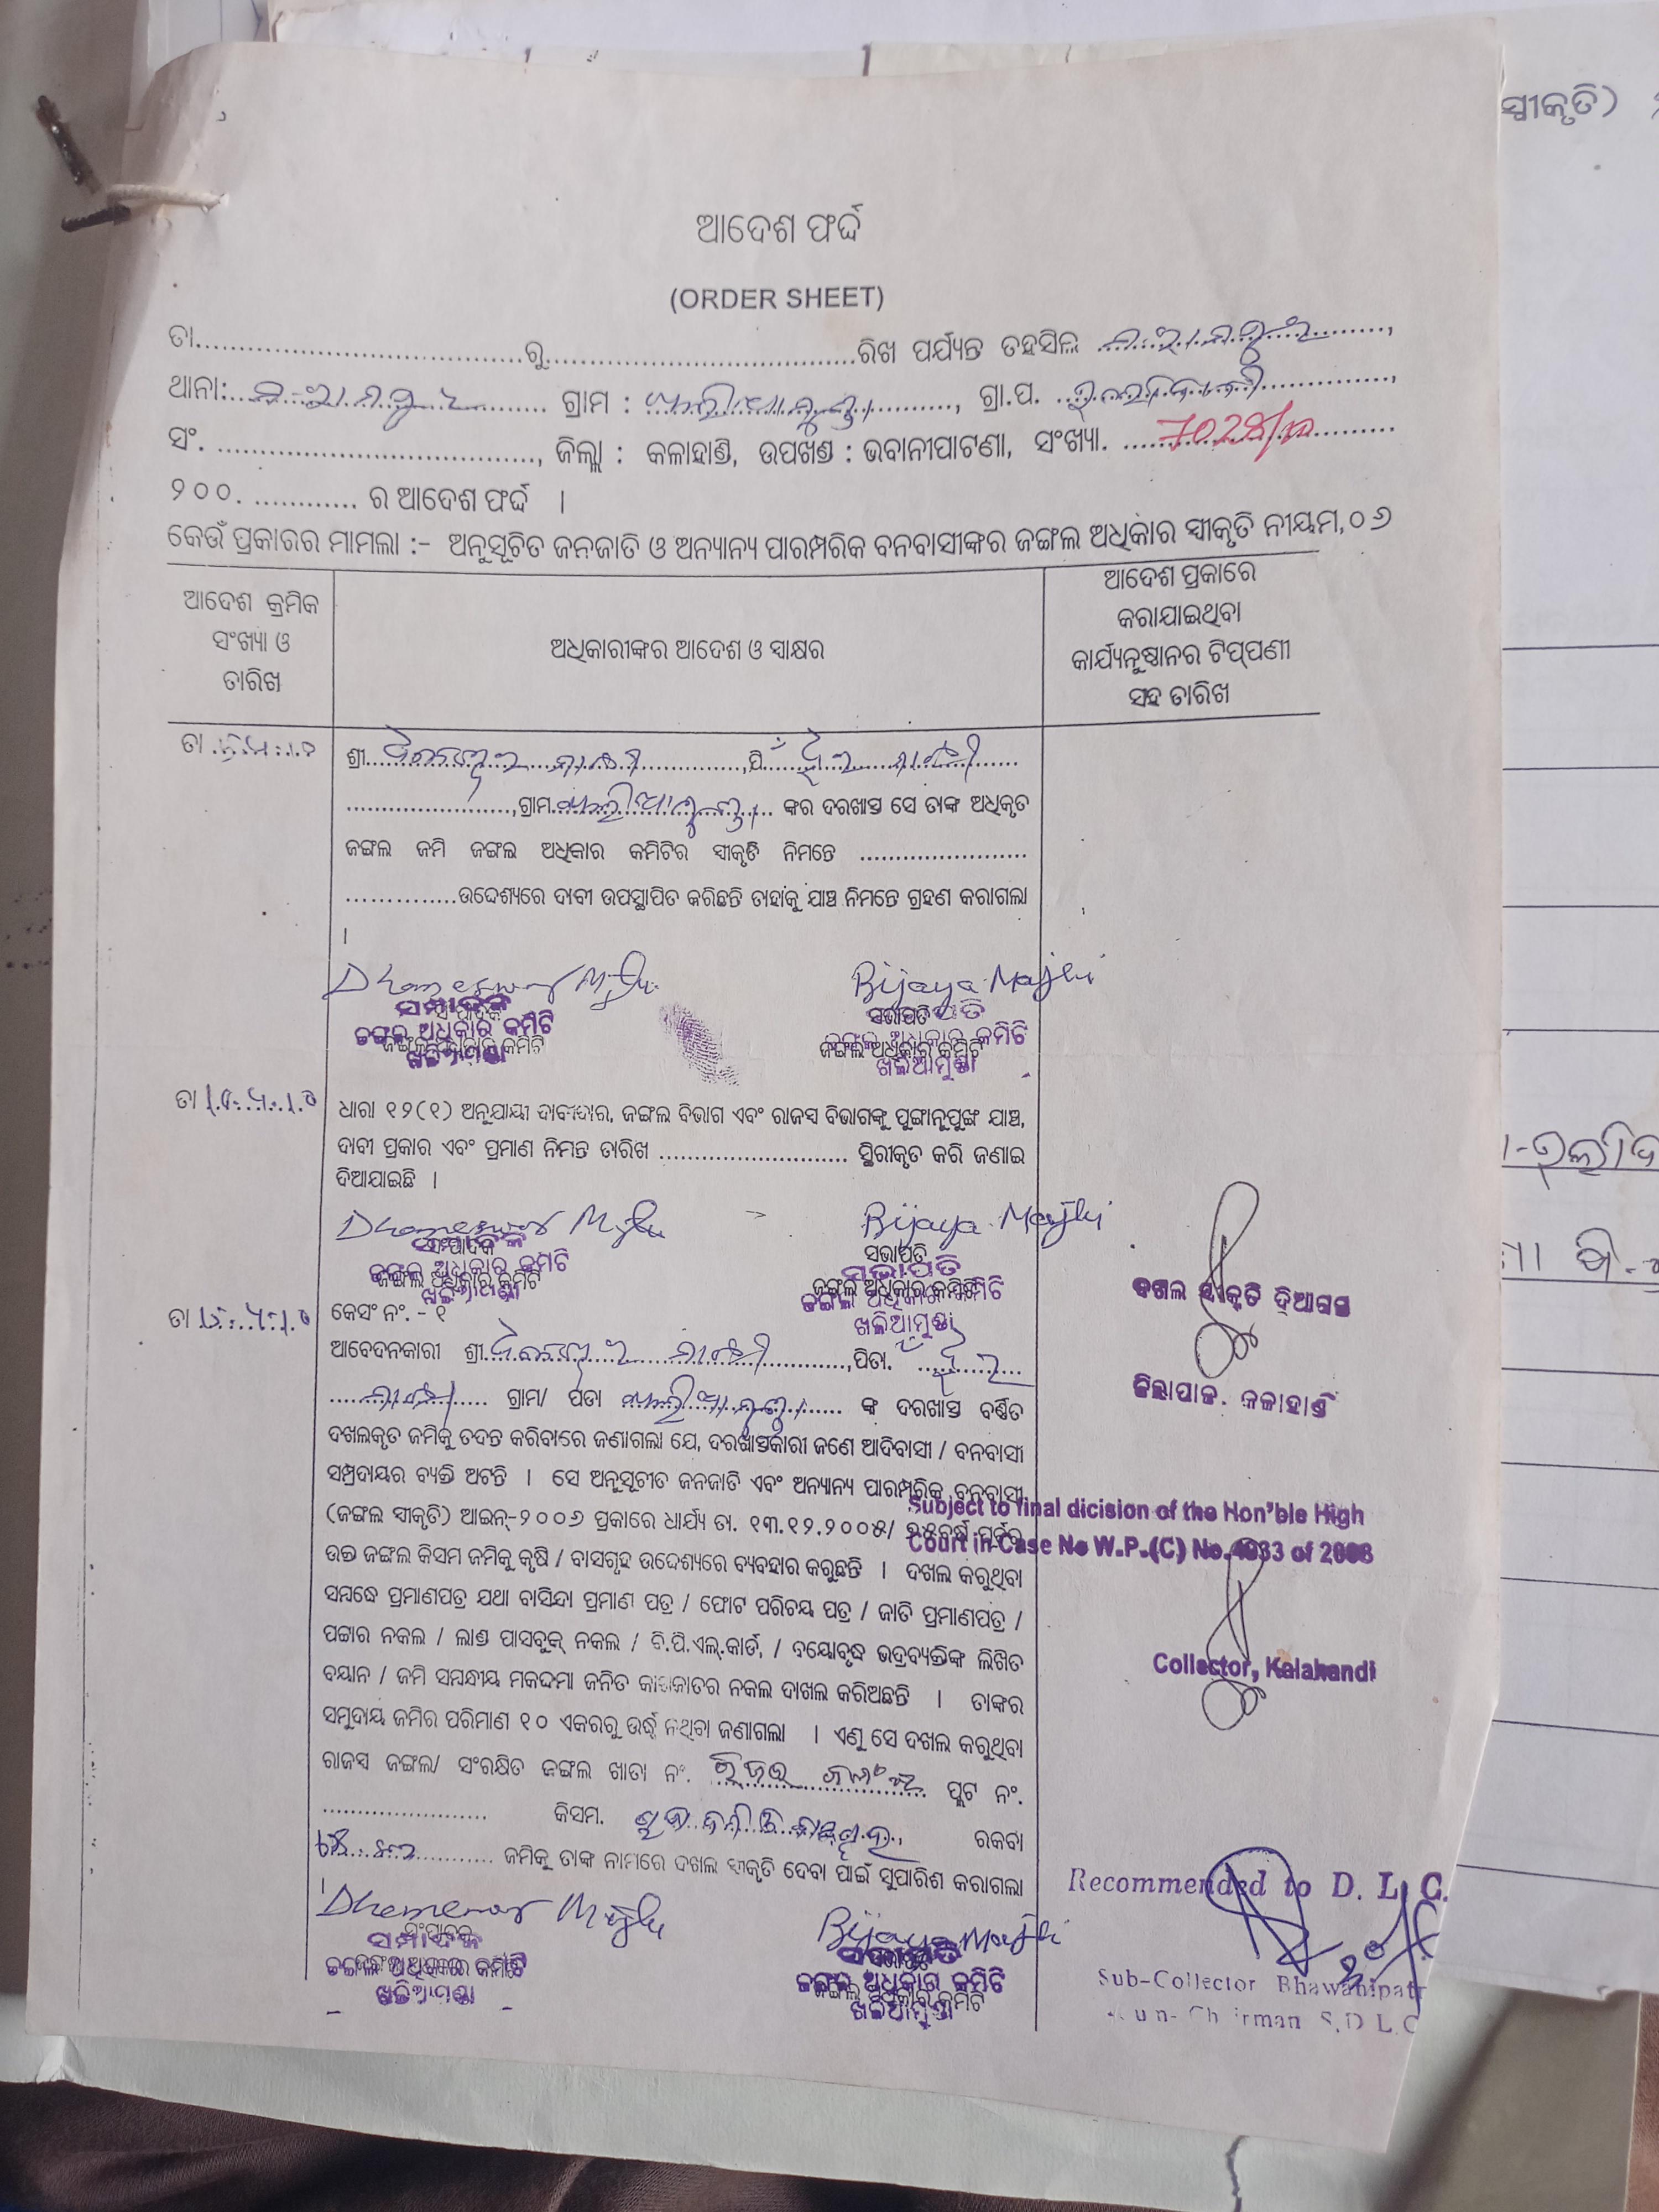 ସ୍ୱୀକୃତି)
ଆଦେଶ ଫର୍ଦ୍ଦ
(ORDER SHEET)
ତା.....................................ରୁ....................................ରିଖ ପର୍ଯ୍ୟନ୍ତ ତହସିଲ
ଥାନା: ଗ୍ରାମ : ଖଲିଆମୁଣ୍ଡା, ଗ୍ରା.ପ.
ସଂ. ...................................., ଜିଲ୍ଲା : କଳାହାଣ୍ଡି, ଉପଖଣ୍ଡ : ଭବାନୀପାଟଣା, ସଂଖ୍ୟା.
୨୦୦. ............ ର ଆଦେଶ ଫର୍ଦ୍ଦ ।
କେଉଁ ପ୍ରକାରର ମାମଲା :- ଅନୁସୂଚିତ ଜନଜାତି ଓ ଅନ୍ୟାନ୍ୟ ପାରମ୍ପରିକ ବନବାସୀଙ୍କର ଜଙ୍ଗଲ ଅଧିକାର ସ୍ୱୀକୃତି ନୀୟମ,୦୬
ଆଦେଶ କ୍ରମିକ
ସଂଖ୍ୟା ଓ
ତାରିଖ
ଅଧିକାରୀଙ୍କର ଆଦେଶ ଓ ସ୍ୱାକ୍ଷର
ଆଦେଶ ପ୍ରକାରେ
କରାଯାଇଥିବା
କାର୍ଯ୍ୟନୁଷ୍ଠାନର ଟିପ୍ପଣୀ
ସହ ତାରିଖ
ତା
ଶ୍ରୀ ମାଝୀ ,ପି ମାଝୀ
........................,ଗ୍ରାମ ଖଲିଆମୁଣ୍ଡା ଙ୍କର ଦରଖାସ୍ତ ସେ ତାଙ୍କ ଅଧିକୃତ
ଜଙ୍ଗଲ ଜମି ଜଙ୍ଗଲ ଅଧିକାର କମିଟିର ସ୍ୱୀକୃତି ନିମନ୍ତେ ........................
..............ଉଦ୍ଦେଶ୍ୟରେ ଦାବୀ ଉପସ୍ଥାପିତ କରିଛନ୍ତି ତାହାକୁ ଯାଞ୍ଚ ନିମନ୍ତେ ଗ୍ରହଣ କରାଗଲା
।
Dhameswar Majhi Bijaya Majhi
ସମ୍ପାଦକ ସଭାପତି
ଜଙ୍ଗଲ ଅଧିକାର କମିଟି ଜଙ୍ଗଲ ଅଧିକାର କମିଟି
ଖଲିଆମୁଣ୍ଡା ଖଲିଆମୁଣ୍ଡା
ତା
ଧାରା ୧୨(୧) ଅନୁଯାୟୀ ଦାବୀଦାର, ଜଙ୍ଗଲ ବିଭାଗ ଏବଂ ରାଜସ୍ୱ ବିଭାଗଙ୍କୁ ପୁଙ୍ଖାନୁପୁଙ୍ଖ ଯାଞ୍ଚ,
ଦାବୀ ପ୍ରକାର ଏବଂ ପ୍ରମାଣ ନିମନ୍ତ ତାରିଖ ........................... ସ୍ଥିରୀକୃତ କରି ଜଣାଇ
ଦିଆଯାଇଛି ।
Dhameswar Majhi Bijaya Majhi
ସମ୍ପାଦକ ସଭାପତି
ଜଙ୍ଗଲ ଅଧିକାର କମିଟି ଜଙ୍ଗଲ ଅଧିକାର କମିଟି
ଖଲିଆମୁଣ୍ଡା ଖଲିଆମୁଣ୍ଡା
ଦଖଲ ସ୍ୱୀକୃତି ଦିଆଗଲା
ଜିଲ୍ଲାପାଳ. କଳାହାଣ୍ଡି
ତା
କେସଂ ନଂ. - ୧
ଆବେଦନକାରୀ ଶ୍ରୀ ମାଝୀ ,ପିତା.
ମାଝୀ ଗ୍ରାମ/ ପତା ଖଲିଆମୁଣ୍ଡା ଙ୍କ ଦରଖାସ୍ତ ବର୍ଣ୍ଣିତ
ଦଖଲକୃତ ଜମିକୁ ତଦନ୍ତ କରିବାରେ ଜଣାଗଲା ଯେ, ଦରଖାସ୍ତକାରୀ ଜଣେ ଆଦିବାସୀ / ବନବାସୀ
ସମ୍ପ୍ରଦାୟର ବ୍ୟକ୍ତି ଅଟନ୍ତି । ସେ ଅନୁସୂଚୀତ ଜନଜାତି ଏବଂ ଅନ୍ୟାନ୍ୟ ପାରମ୍ପରିକ ବନବାସୀ
(ଜଙ୍ଗଲ ସ୍ୱୀକୃତି) ଆଇନ୍-୨୦୦୬ ପ୍ରକାରେ ଧାର୍ଯ୍ୟ ତା. ୧୩.୧୨.୨୦୦୫/ ୭୫ବର୍ଷ ପୂର୍ବରୁ
ଉକ୍ତ ଜଙ୍ଗଲ କିସମ ଜମିକୁ କୃଷି / ବାସଗୃହ ଉଦ୍ଦେଶ୍ୟରେ ବ୍ୟବହାର କରୁଛନ୍ତି । ଦଖଲ କରୁଥିବା
ସମ୍ବନ୍ଧେ ପ୍ରମାଣପତ୍ର ଯଥା ବାସିନ୍ଦା ପ୍ରମାଣ ପତ୍ର / ଫୋଟ ପରିଚୟ ପତ୍ର / ଜାତି ପ୍ରମାଣପତ୍ର /
ପଟ୍ଟାର ନକଲ / ଲାଣ୍ଡ ପାସବୁକ୍ ନକଲ / ବି.ପି.ଏଲ୍.କାର୍ଡ, / ବୟୋବୃଦ୍ଧ ଭଦ୍ରବ୍ୟକ୍ତିଙ୍କ ଲିଖିତ
ବୟାନ / ଜମି ସମ୍ବନ୍ଧୀୟ ମକଦ୍ଦମା ଜନିତ କାଗଜାତର ନକଲ ଦାଖଲ କରିଅଛନ୍ତି । ତାଙ୍କର
ସମୁଦାୟ ଜମିର ପରିମାଣ ୧୦ ଏକରରୁ ଉର୍ଦ୍ଧ୍ୱ ନଥିବା ଜଣାଗଲା । ଏଣୁ ସେ ଦଖଲ କରୁଥିବା
ରାଜସ୍ୱ ଜଙ୍ଗଲ/ ସଂରକ୍ଷିତ ଜଙ୍ଗଲ ଖାତା ନଂ. ରିଜର୍ଭ ଜଙ୍ଗଲ ପ୍ଲଟ ନଂ.
....................... କିସମ. ରକବା
ଜମିକୁ ତାଙ୍କ ନାମରେ ଦଖଲ ସ୍ୱୀକୃତି ଦେବା ପାଇଁ ସୁପାରିଶ କରାଗଲା
।
Subject to final dicision of the Hon'ble High
Court in Case No W.P.(C) No.4933 of 2008
Collector, Kalahandi
Dhameswar Majhi Bijaya Majhi
ସମ୍ପାଦକ ସଭାପତି
ଜଙ୍ଗଲ ଅଧିକାର କମିଟି ଜଙ୍ଗଲ ଅଧିକାର କମିଟି
ଖଲିଆମୁଣ୍ଡା ଖଲିଆମୁଣ୍ଡା
Recommended to D. L. C.
Sub-Collector Bhawanipatn
S.D L.C